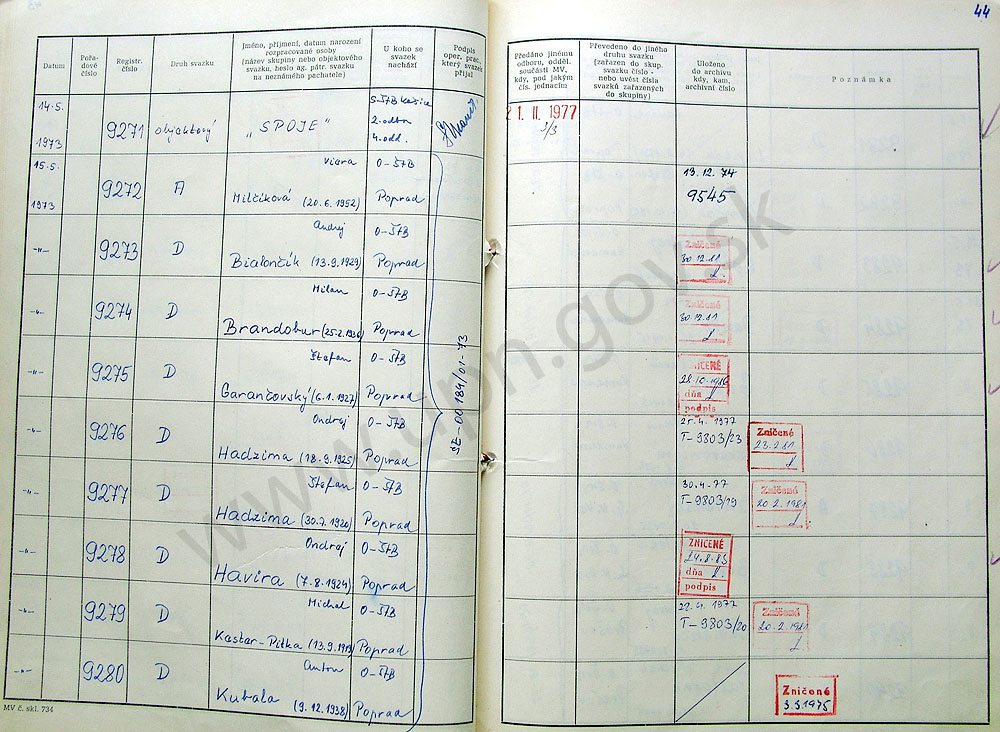 44
Datum
Pořa-
dové
číslo
Registr.
číslo
Druh svazku
Jméno, příjmení, datum narození
rozpracované osoby
(název skupiny nebo objektového
svazku, heslo ag. pátr. svazku
na neznámého pachatele)
U koho se
svazek
nachází
Podpis
oper. prac.,
který svazek
přijal
Předáno jinému
odboru, odděl.
součásti MV,
kdy, pod jakým
čís. jednacím
Převedeno do jiného
druhu svazku
(zařazen do skup.
svazku číslo -
nebo uvést čísla
svazků zařazených
do skupiny)
Uloženo
do archivu
kdy, kam,
archivní číslo
Poznámka
14.5.
1973
9271
objektový
„SPOJE"
S-ŠTB Košice
2. odbor
4. odd.
21. II. 1977
3/3
15.5.
1973
9272
A
Viera
Milčíková (20.6.1952)
O-ŠTB
Poprad
19.12.74
9545
-"-
9273
D
Andrej
Bialončík (13.9.1929)
O-ŠTB
Poprad
Zničené
30.12.81
-"-
9274
D
Milan
Brandobur (25.2.1936)
O-ŠTB
Poprad
Zničené
30.12.81
-"-
9275
D
Štefan
Garančovský (6.1.1927)
O-ŠTB
Poprad
ZNIČENÉ
28.10.1986
dňa
podpis
-"-
9276
D
Ondrej
Hadzima (18.9.1925)
O-ŠTB
Poprad
25.4.1977
T-9803/23
Zničené
23.2.81
-"-
9277
D
Štefan
Hadzima (30.7.1920)
O-ŠTB
Poprad
30.4.77
T-9803/19
Zničené
20.2.1981
-"-
9278
D
Ondrej
Havira (7.8.1924)
O-ŠTB
Poprad
ZNIČENÉ
24.8.83
dňa
podpis
-"-
9279
D
Michal
Kaster-Pitka
O-ŠTB
Poprad
22.4.1977
T-9803/20
Zničené
20.2.1981
-"-
9280
D
Anton
Kubala (9.12.1938)
O-ŠTB
Poprad
Zničené
3.3.1975
MV č. skl. 734
www.upn.gov.sk